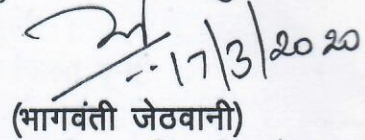 17/3/2020
(भागवंती जेठवानी)